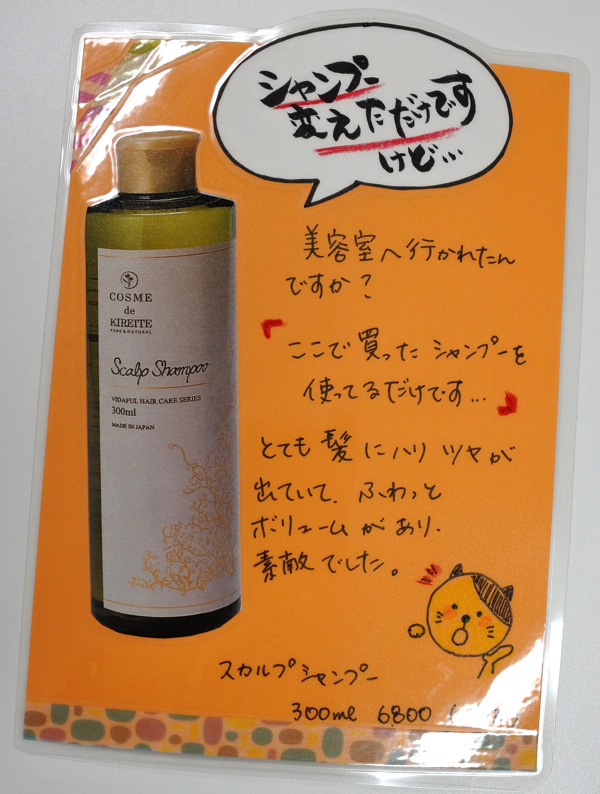 シャンプー
変えただけです
けど…
美容室へ行かれたん
ですか?
『ここで買ったシャンプーを
使ってるだけです…』
とても髪にハリツヤが
出ていて、ふわっと
ボリュームがあり、
素敵でした。
COSME
de
KIREITE
PURE & NATURAL
Scalp Shampoo
VIDAFUL HAIR CARE SERIES
300ml
MADE IN JAPAN
スカルプシャンプー
300ml 6800